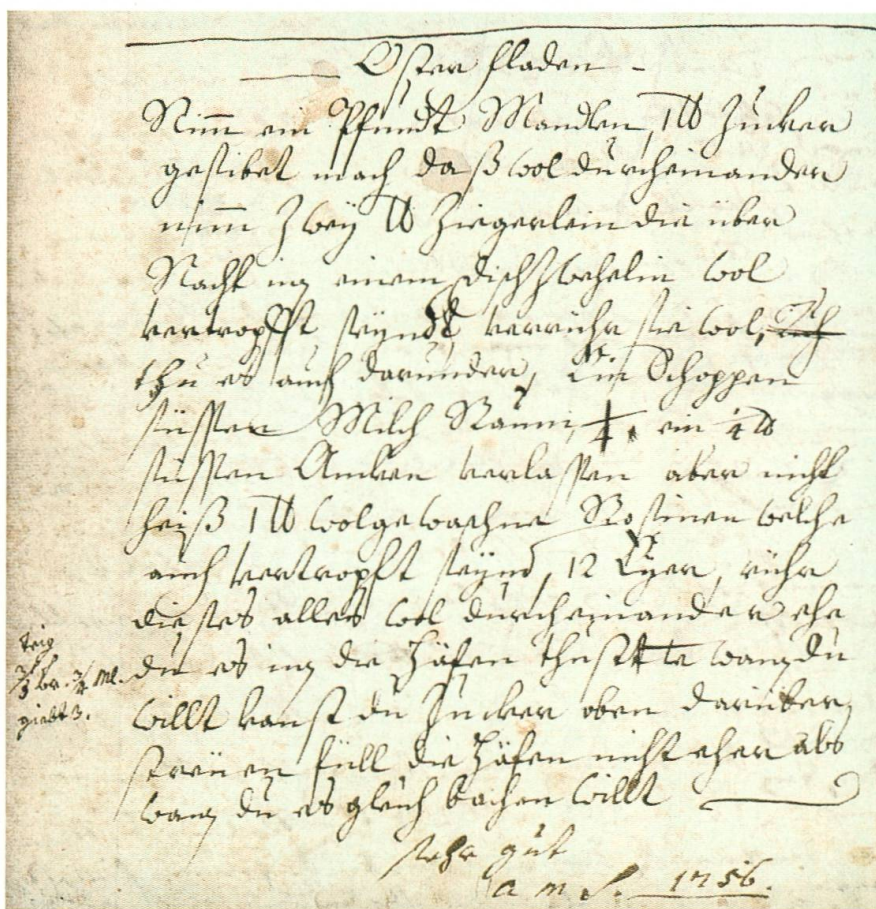 Oster fladen -
Nimm ein Pfundt Mandlen, 1 ℔ Zucker
gestibet mach daß wol durcheinander
nimm Zwey ℔ Ziegerlein die über
Nacht in einem Dischzwehelin wol
vertropfft seynd verrühr sie wol,
thu es auch darunder, Ein Schoppen
süssen Milch Raum, ein 1/4 ℔
süssen Ancken verlassen aber nicht
heiß 1 ℔ wolgewaschne Rosinen welche
auch vertropft seynd, 12 Eyer, rühr
dieses alles wol durcheinander ehe
du es in die Häfen thust wan du
willt kanst du Zucker oben darüber
streüen füll die Häfen nicht eher als
wan du es gleich bachen willt
sehr gut
a m S. 1756.
Teig
ml.
giebt 3.